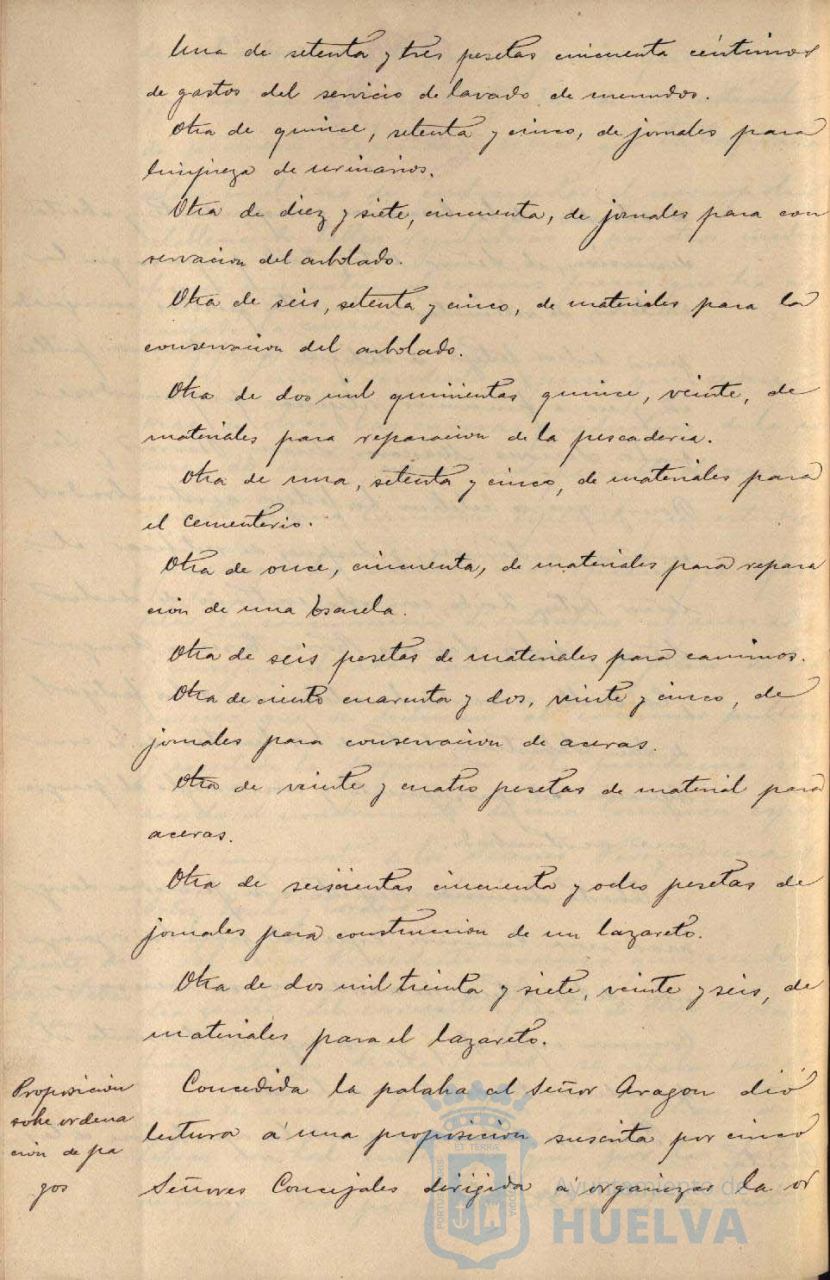 Una de setenta y tres pesetas cincuenta céntimos
de gastos del servicio de lavado de menudos.
Otra de quince, setenta y cinco, de jornales para
limpieza de urinarios.
Otra de diez y siete, cincuenta, de jornales para con
servacion del arbolado.
Otra de seis, setenta y cinco, de materiales para la
conservacion del arbolado.
Otra de dos mil quinientas quince, veinte, de
materiales para reparacion de la pescaderia.
Otra de una, setenta y cinco, de materiales para
el cementerio.
Otra de once, cincuenta, de materiales para repara
ción de una
Otra de seis pesetas de materiales para caminos.
Otra de ciento cuarenta y dos, veinte y cinco, de
jornales para conservacion de aceras.
Otra de veinte y cuatro pesetas de material para
aceras.
Otra de seiscientas cincuenta y ocho pesetas de
jornales para construccion de un lazareto.
Otra de dos mil treinta y siete, veinte y seis, de
materiales para el lazareto.
Proposicion
sobre ordena
cion de pa
gos
Concedida la palabra al Señor Aragon dió
lectura á una proposicion suscrita por cinco
Señores Concejales dirigida á organizar la or
Ayuntamiento de
HUELVA